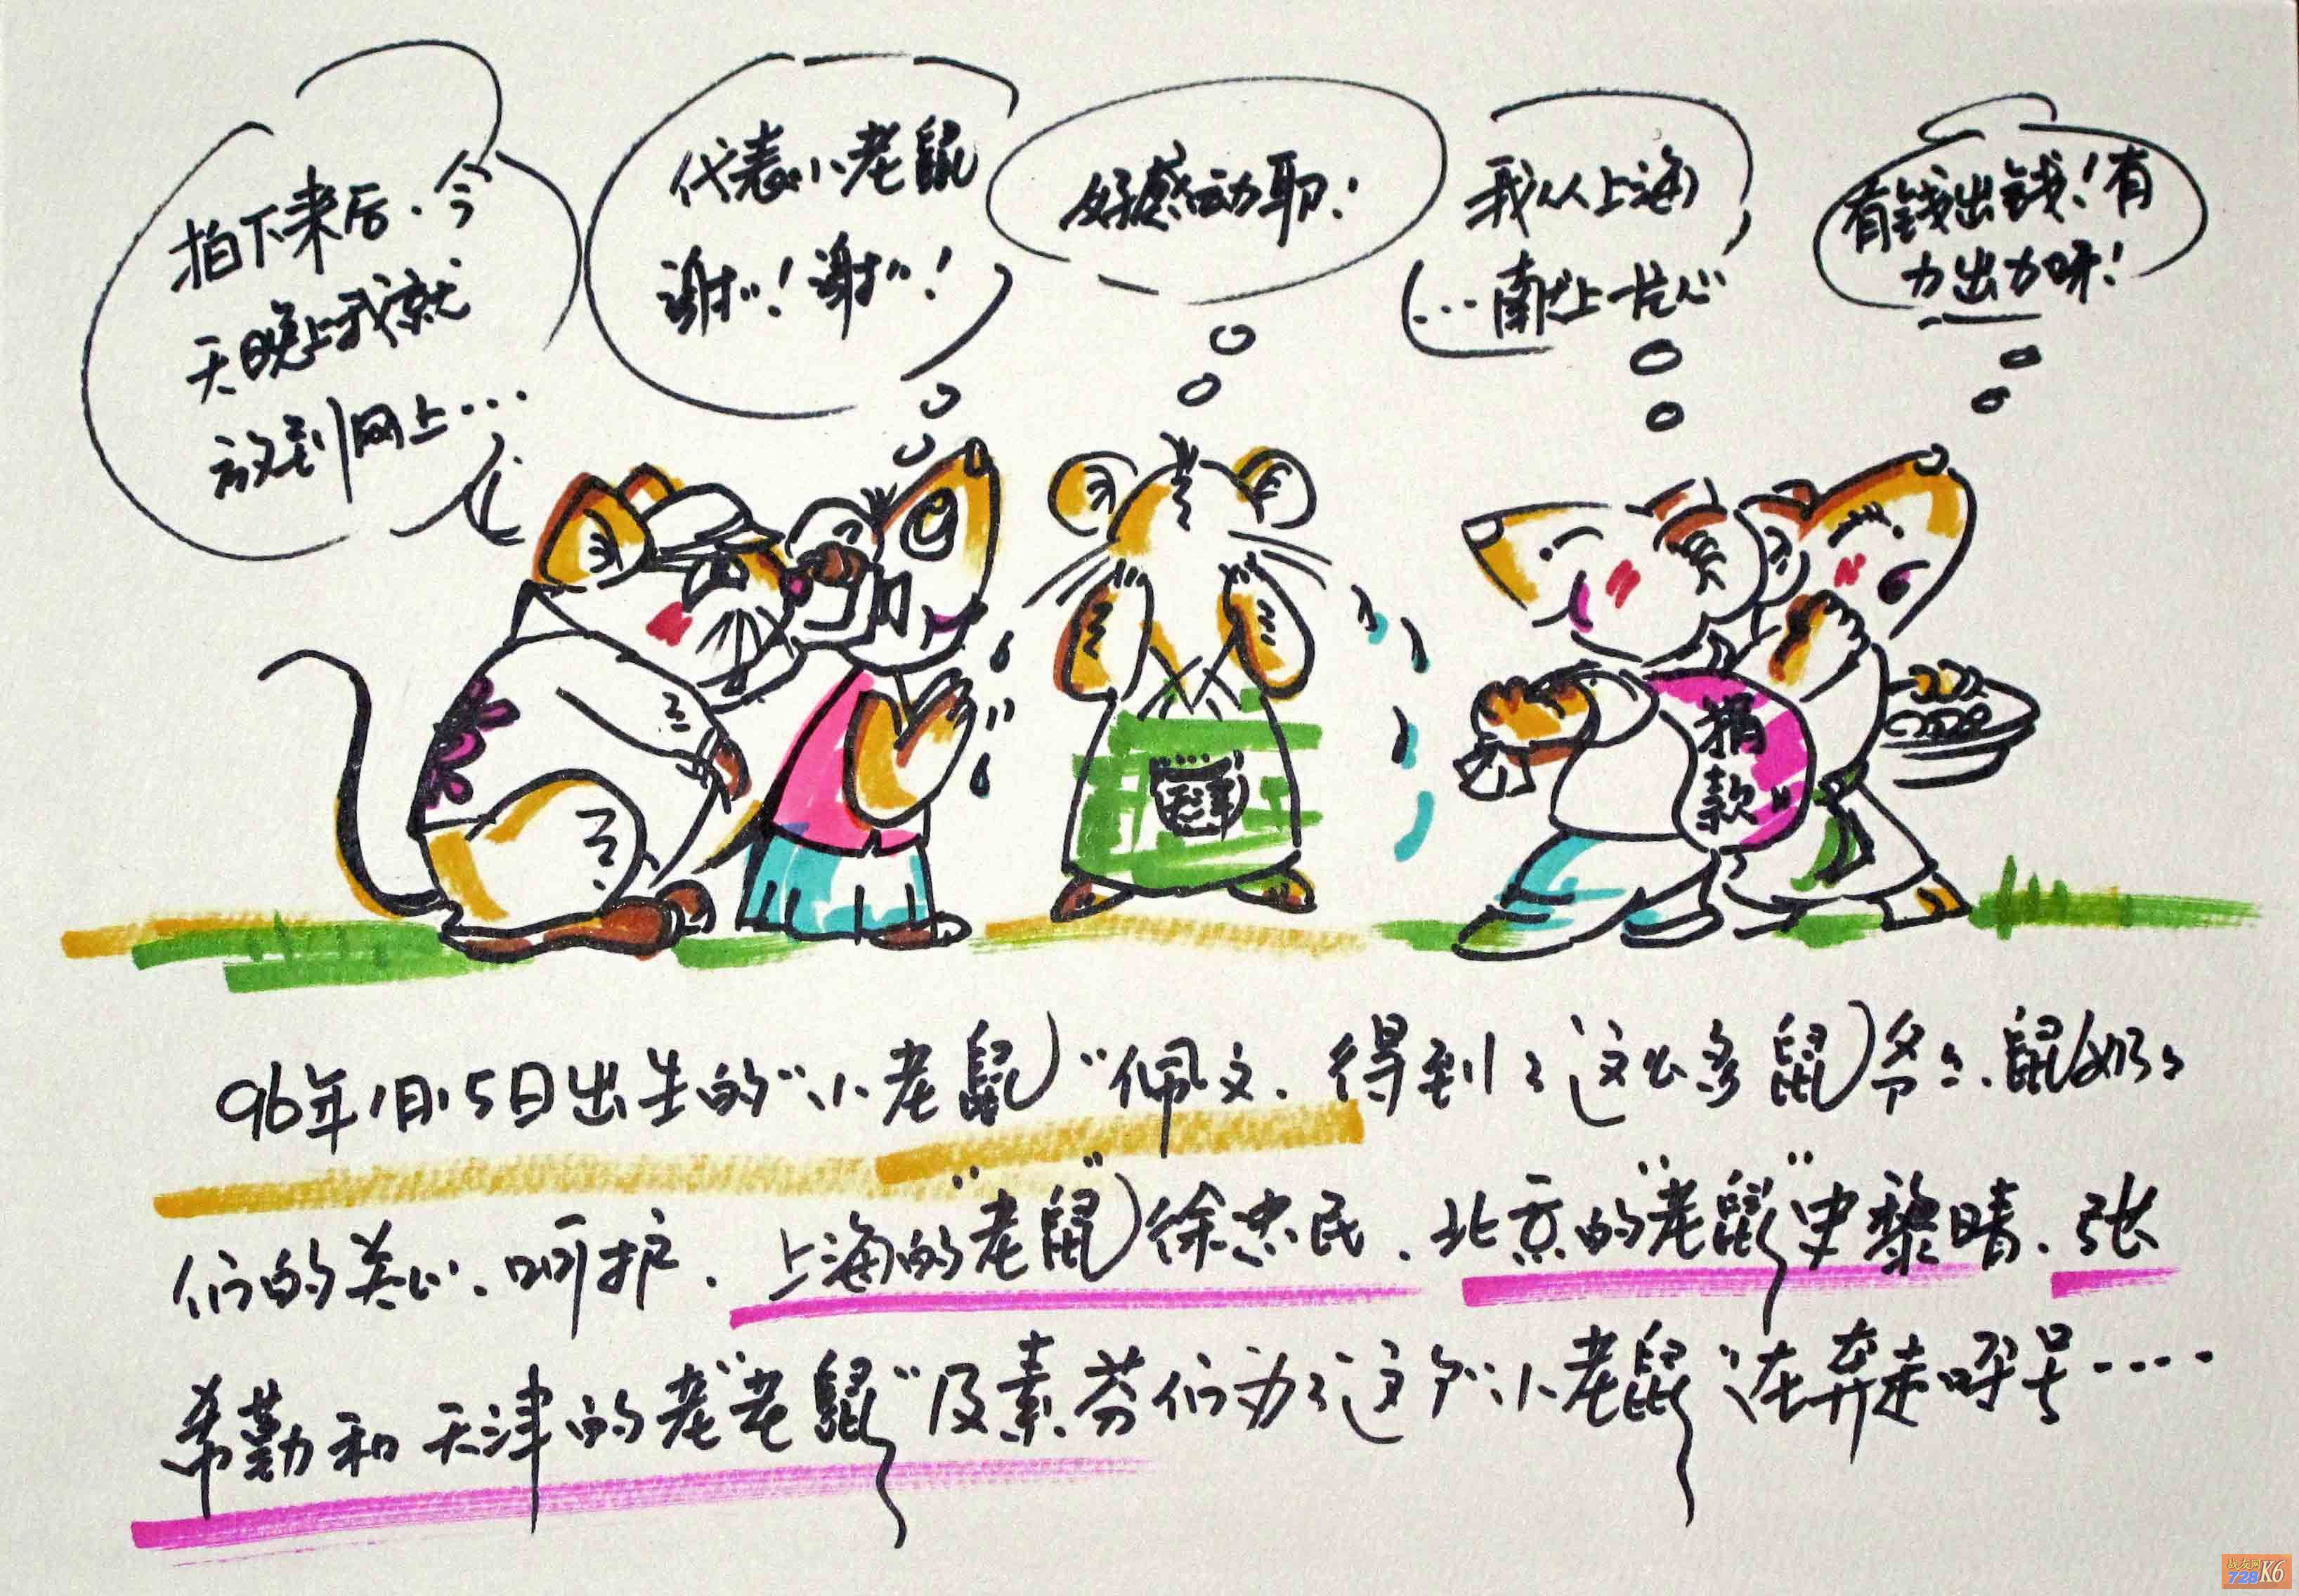 拍下来后.今
天晚上我就
放到网上…
代表小老鼠
谢谢!谢谢!
好感动耶!
我从上海
…南上一片心
有钱出钱!有
力出力呀!
天津
捐
款
96年1月15日出生的“小老鼠”佩文.得到了这么多鼠爷爷、鼠奶奶
们的关心、呵护.上海的“老鼠”徐忠民.北京的“老鼠”史黎晴、张
希勤和天津的老“老鼠”及素芬们为了这个“小老鼠”在奔走呼号……
战友网
728K6